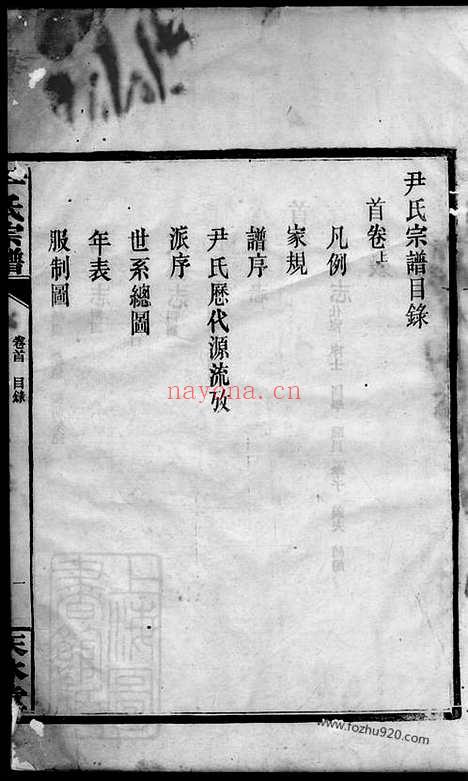 尹氏宗譜目錄
首卷上
凡例
家規
譜序
尹氏歷代源流攷
派序
世系總圖
年表
服制圖
氏宗譜
卷首 目錄
一
天水堂
nayona.cn
www.fozhu920.com